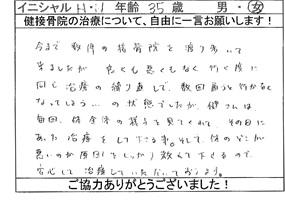 イニシャル H・i 年齢 35 歳 男・女
健接骨院の治療について、自由に一言お願いします！
今まで数件の接骨院を渡り歩いて
来ましたが 良くも悪くもなく 行く度に
同じ治療の繰り返しで、数回通うと行かなく
なってしまう… の状態でしたが、健さんは
毎回、体全体の様子を見てくれて、その日に
あった治療をして下さる。そして、体のどこが
悪いのか原因をしっかり教えて下さるので、
安心して治療していただいております。
ご協力ありがとうございました！